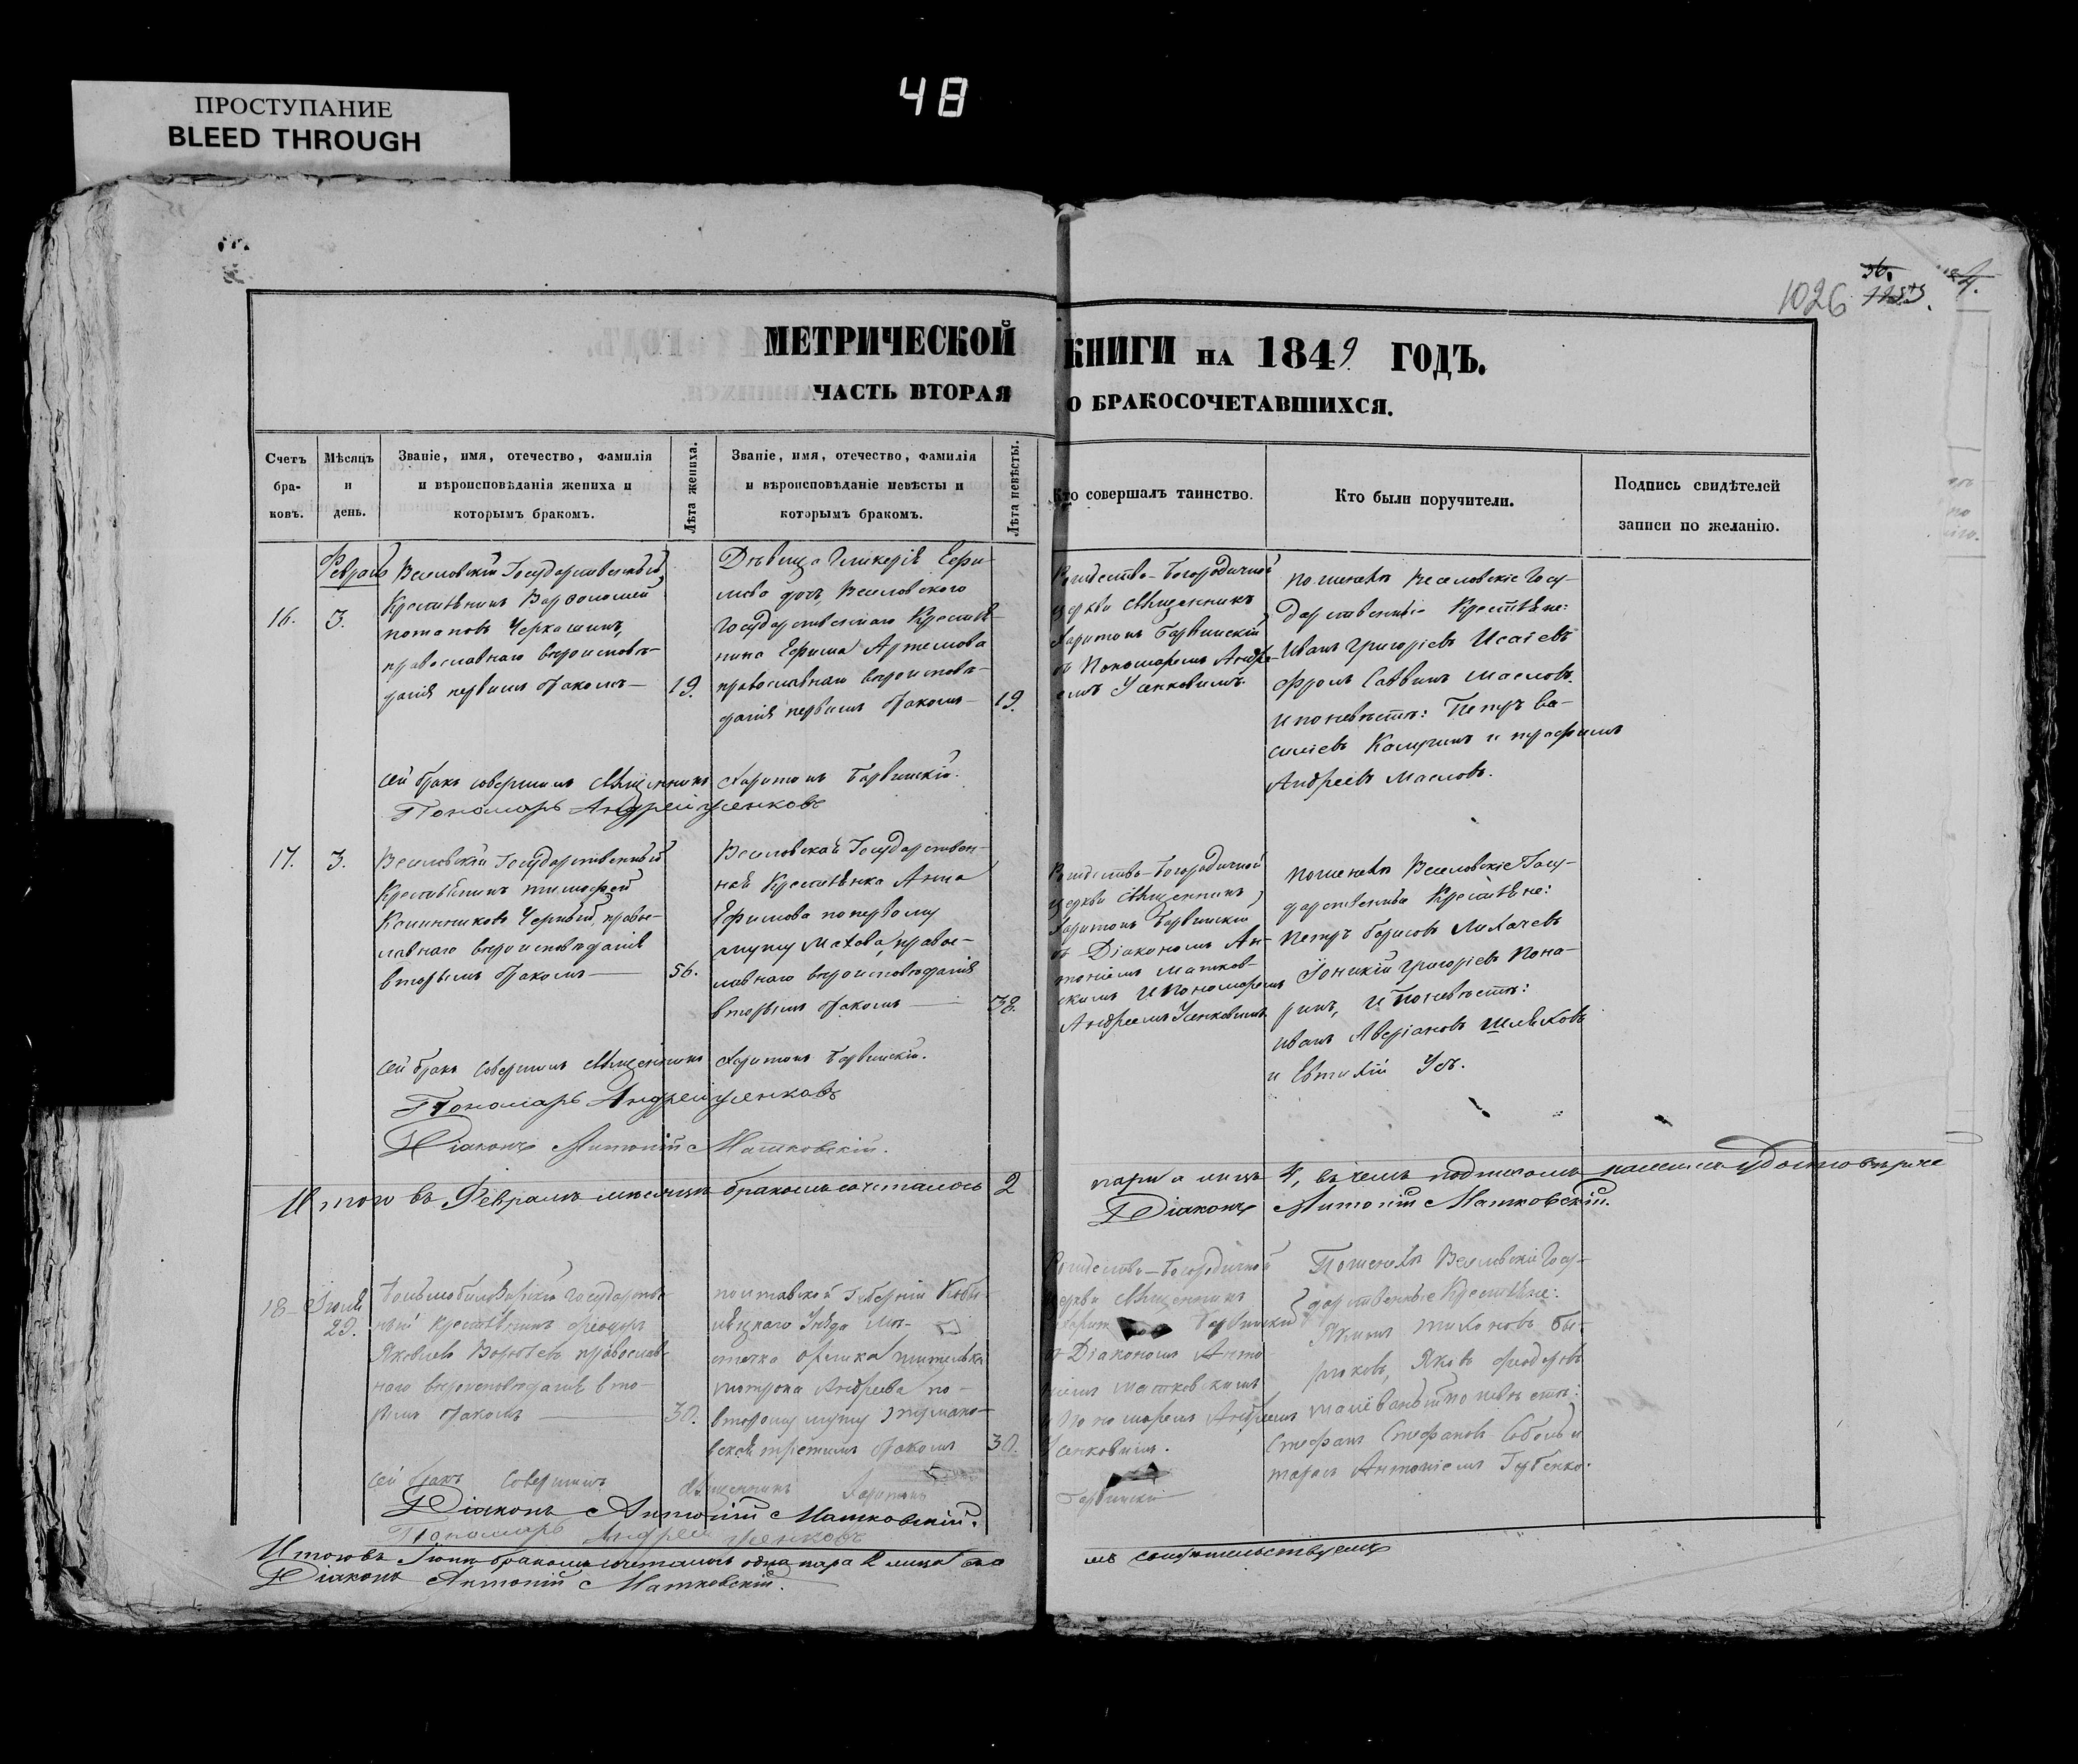 ПРОСТУПАНИЕ
BLEED THROUGH
48
1026
МЕТРИЧЕСКОЙ КНИГИ НА 1849 ГОДЪ.
ЧАСТЬ ВТОРАЯ О БРАКОСОЧЕТАВШИХСЯ.
Счетъ бра-ковъ.
Мѣсяцъ и день.
Званіе, имя, отечество, фамилія
и вѣроисповѣданія жениха и
которымъ бракомъ.
Лѣта жениха.
Званіе, имя, отечество, фамилія
и вѣроисповѣданіе невѣсты и
которымъ бракомъ.
Лѣта невѣсты.
Кто совершалъ таинство.
Кто были поручители.
Подпись свидѣтелей
записи по желанію.
16.
3.
Веселовскій Государственный
Крестьянинъ
Потаповъ Черкашинъ,
православнаго вѣроисповѣ-
данія первымъ бракомъ—
19.
Дѣвица Гликерія Ефи-
мова дочь, Веселовского
Государственнаго Крестья-
нина Ефима Артемова
православнаго вѣроисповѣ-
данія первымъ бракомъ—
19.
Рождество-Богородичной
церкви Священникъ
Харитонъ
съ Пономаремъ Андре-
емъ Усенковымъ.
по женихѣ Веселовскіе Госу-
дарственные Крестьяне:
Иванъ Григорієвъ Исаіевъ
Фролъ Саввинъ Масловъ.
и по невѣстѣ: Петръ Ва-
силіевъ и Трофимъ
Андреевъ Масловъ.
Сей бракъ совершилъ Священникъ Харитонъ
Пономарь Андрей Усенковъ
17.
3.
Веселовскій Государственный
Крестьянинъ Тимофей
Черный, правос-
лавнаго вѣроисповѣданія
вторымъ бракомъ—
56.
Веселовская Государствен-
ная Крестьянка Анна
Ефимова по первому
мужу Махова, правос-
лавнаго вѣроисповѣданія
вторымъ бракомъ —
38.
Рождество-Богородичной
церкви Священникъ
Харитонъ
съ Діакономъ Ан-
тоніемъ Матков-
скимъ и Пономаремъ
Андреемъ Усенковымъ
по женихѣ Веселовскіе Госу-
дарственные Крестьяне:
Петръ Борисовъ Лихачевъ
Іоникій Григоріевъ Пона-
ринъ, и по невѣстѣ:
Иванъ Аверіановъ Шляховъ
и Евтихій
Сей бракъ совершилъ Священникъ Харитонъ
Пономарь Андрей Усенковъ
Діаконъ Антоній Матковскій.
Итого въ Февралѣ мѣсяцѣ бракомъ сочталось 2 пары а лицъ 4, въ чемъ
Діаконъ Антоній Матковскій.
18—
Іюля
29.
Государствен-
ный Крестьянинъ Феодоръ
Яковлевъ православ-
наго вѣроисповѣданія вто-
рымъ бракомъ —
30.
Полтавской Губерніи Кобы-
ляцкаго Уѣзда Мѣ-
стечка Орлика жителька
Матрона Андреева по
второму мужу
третимъ бракомъ
30.
Рождество-Богородичной
церкви Священникъ
съ Діакономъ Анто-
ніемъ Матковскимъ
и Пономаремъ Андреемъ
Усенковымъ.
По женихѣ Веселовскіе Госу-
дарственные Крестьяне:
Якимъ Тихоновъ Би-
рюковъ, Яковъ Феодоровъ
по невѣстѣ:
Стефанъ Стефановъ Соболь и
Тарасъ Губенко.
Сей бракъ совершилъ Священникъ Харитонъ
Діаконъ Антоній Матковскій.
Пономарь Андрей Усенковъ
Итого въ Іюлѣ бракомъ сочталось одна пара 2 лица
Діаконъ Антоній Матковскій.